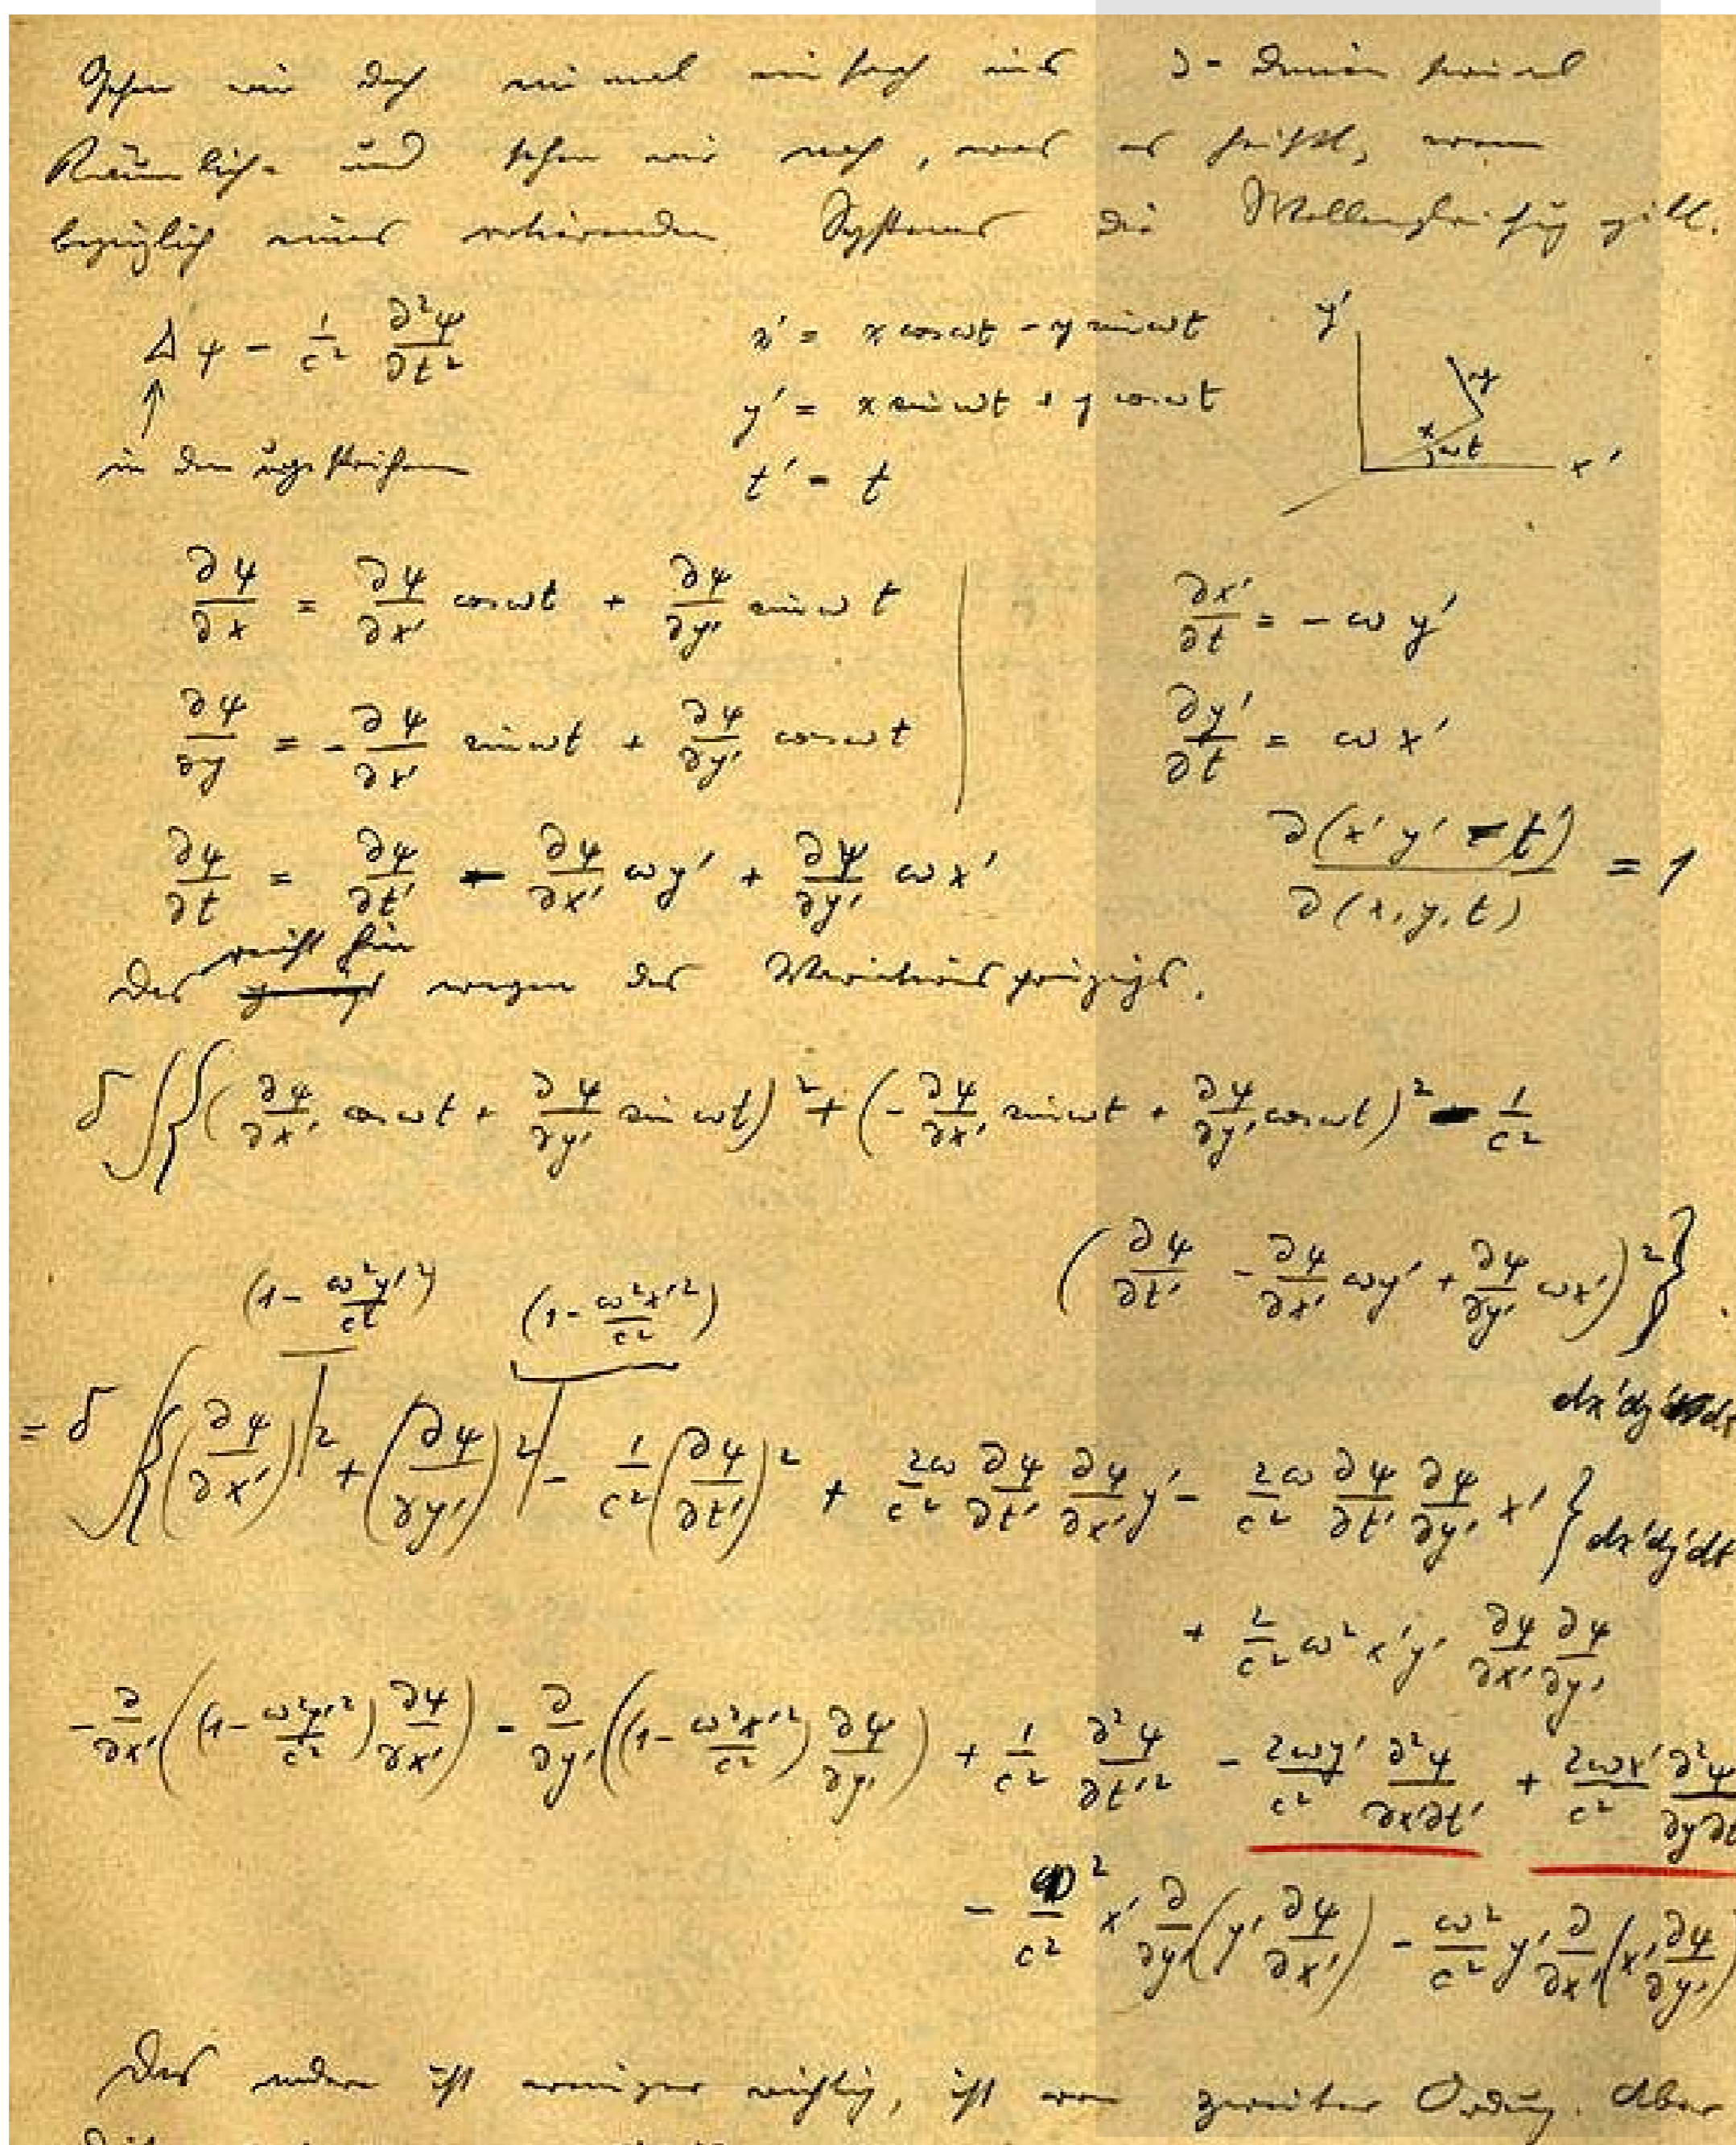 Gehen wir doch einmal einfach ins 3-dimensional
Räumliche und sehen wir nach, was es heißt, wenn
bezüglich eines rotierenden Systems die Wellengleichung gilt.
Δψ − 1/c² ∂²ψ/∂t²    x' = x cos ωt − y sin ωt    y'
↑    y' = x sin ωt + y cos ωt    x    y    ωt    x'
in den ungestrichenen    t' = t
∂ψ/∂x = ∂ψ/∂x' cos ωt + ∂ψ/∂y' sin ωt    ∂x'/∂t = − ω y'
∂ψ/∂y = − ∂ψ/∂x' sin ωt + ∂ψ/∂y' cos ωt    ∂y'/∂t = ω x'
∂ψ/∂t = ∂ψ/∂t' − ∂ψ/∂x' ω y' + ∂ψ/∂y' ω x'    ∂(x' y' t')/∂(x, y, t) = 1
Das reicht hin wegen des Variationsprinzips.
δ∫{(∂ψ/∂x' cos ωt + ∂ψ/∂y' sin ωt)² + (− ∂ψ/∂x' sin ωt + ∂ψ/∂y' cos ωt)² − 1/c²
(∂ψ/∂t' − ∂ψ/∂x' ωy' + ∂ψ/∂y' ωx')²}
dx'dy'dt
(1 − ω²y'²/c²)    (1 − ω²x'²/c²)
= δ∫{(∂ψ/∂x')² + (∂ψ/∂y')² − 1/c² (∂ψ/∂t')² + 2ω/c² ∂ψ/∂t' ∂ψ/∂x' y' − 2ω/c² ∂ψ/∂t' ∂ψ/∂y' x'} dx'dy'dt
+ 2/c² ω² x'y' ∂ψ/∂x' ∂ψ/∂y'
− ∂/∂x'((1 − ω²y'²/c²) ∂ψ/∂x') − ∂/∂y'((1 − ω²x'²/c²) ∂ψ/∂y') + 1/c² ∂²ψ/∂t'² − 2ωy'/c² ∂²ψ/∂x'∂t' + 2ωx'/c² ∂²ψ/∂y∂t
− ω²/c² x' ∂/∂y'(y' ∂ψ/∂x') − ω²/c² y' ∂/∂x'(x' ∂ψ/∂y')
Das andere ist weniger wichtig, ist von zweiter Ordnung. Aber